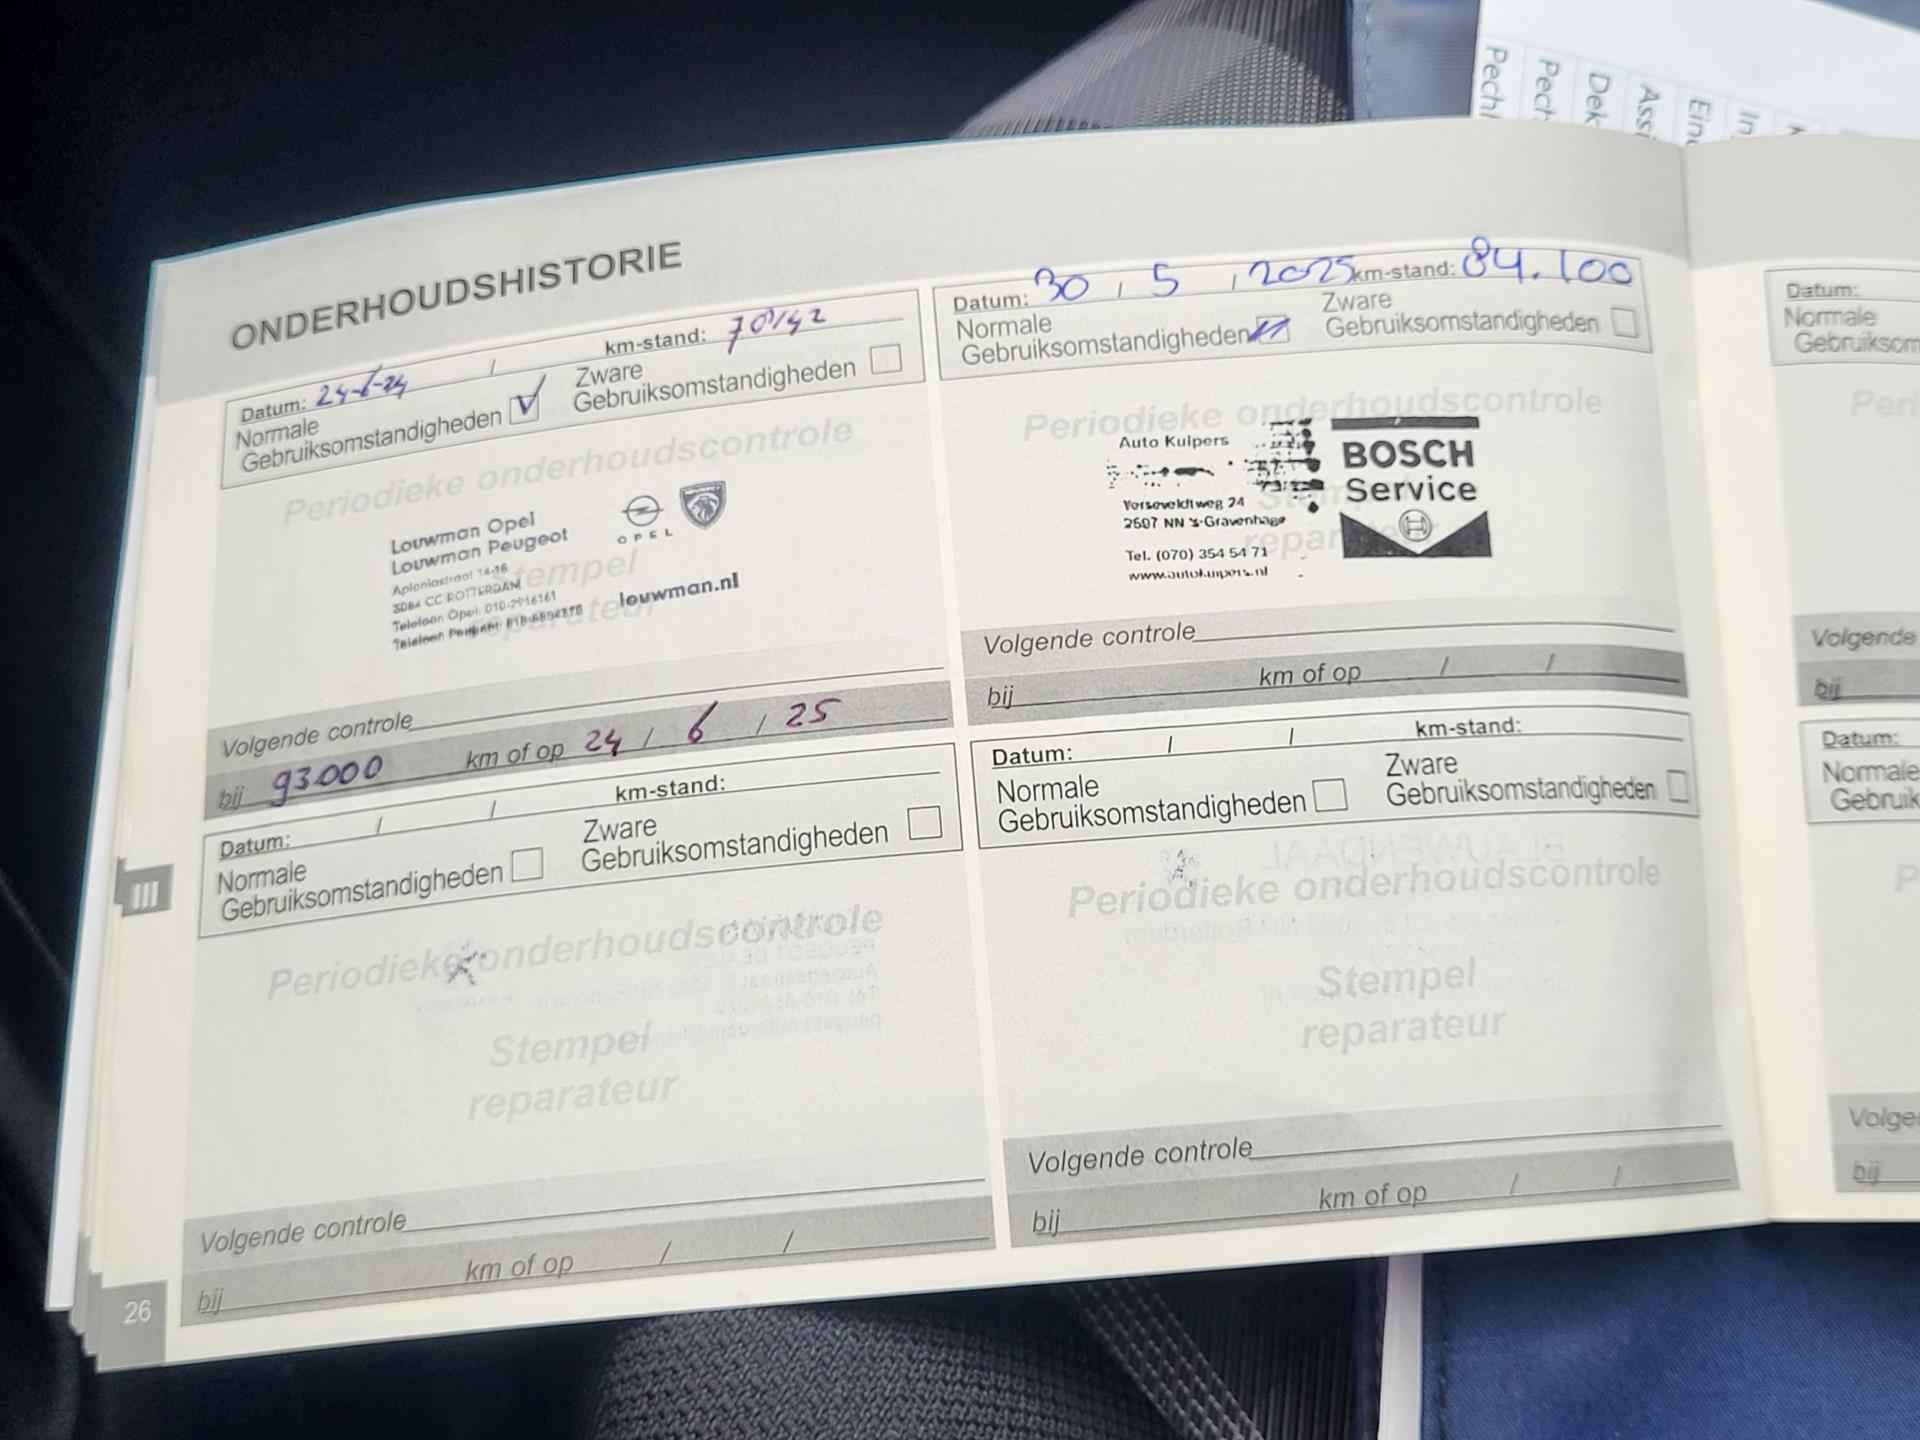 ONDERHOUDSHISTORIE
Datum: 24-6-24 / km-stand:
Normale
Gebruiksomstandigheden V
Zware
Gebruiksomstandigheden
Periodieke onderhoudscontrole
Stempel
reparateur
Louwman Opel
Louwman Peugeot
3084 CC ROTTERDAM
OPEL
louwman.nl
Volgende controle
bij 93000 km of op 24 / 6 / 25
Datum: / / km-stand:
Normale
Gebruiksomstandigheden
Zware
Gebruiksomstandigheden
Periodieke onderhoudscontrole
Stempel
reparateur
Volgende controle
bij km of op / /
26
III
Datum: 30 / 5 / 2025 km-stand: 84.100
Normale
Gebruiksomstandigheden
Zware
Gebruiksomstandigheden
Periodieke onderhoudscontrole
Auto Kuipers
24
2507 NN 's-Gravenhage
Tel. (070) 354 54 71
www.autokuipers.nl
BOSCH
Service
Volgende controle
bij km of op / /
Datum: / / km-stand:
Normale
Gebruiksomstandigheden
Zware
Gebruiksomstandigheden
Periodieke onderhoudscontrole
Stempel
reparateur
Volgende controle
bij km of op / /
Datum:
Normale
Gebruiksom
Peri
Volgende
bij
Datum:
Normale
Gebruik
P
Volge
bij
Pech
Pech
Dek
Ass
Ein
In